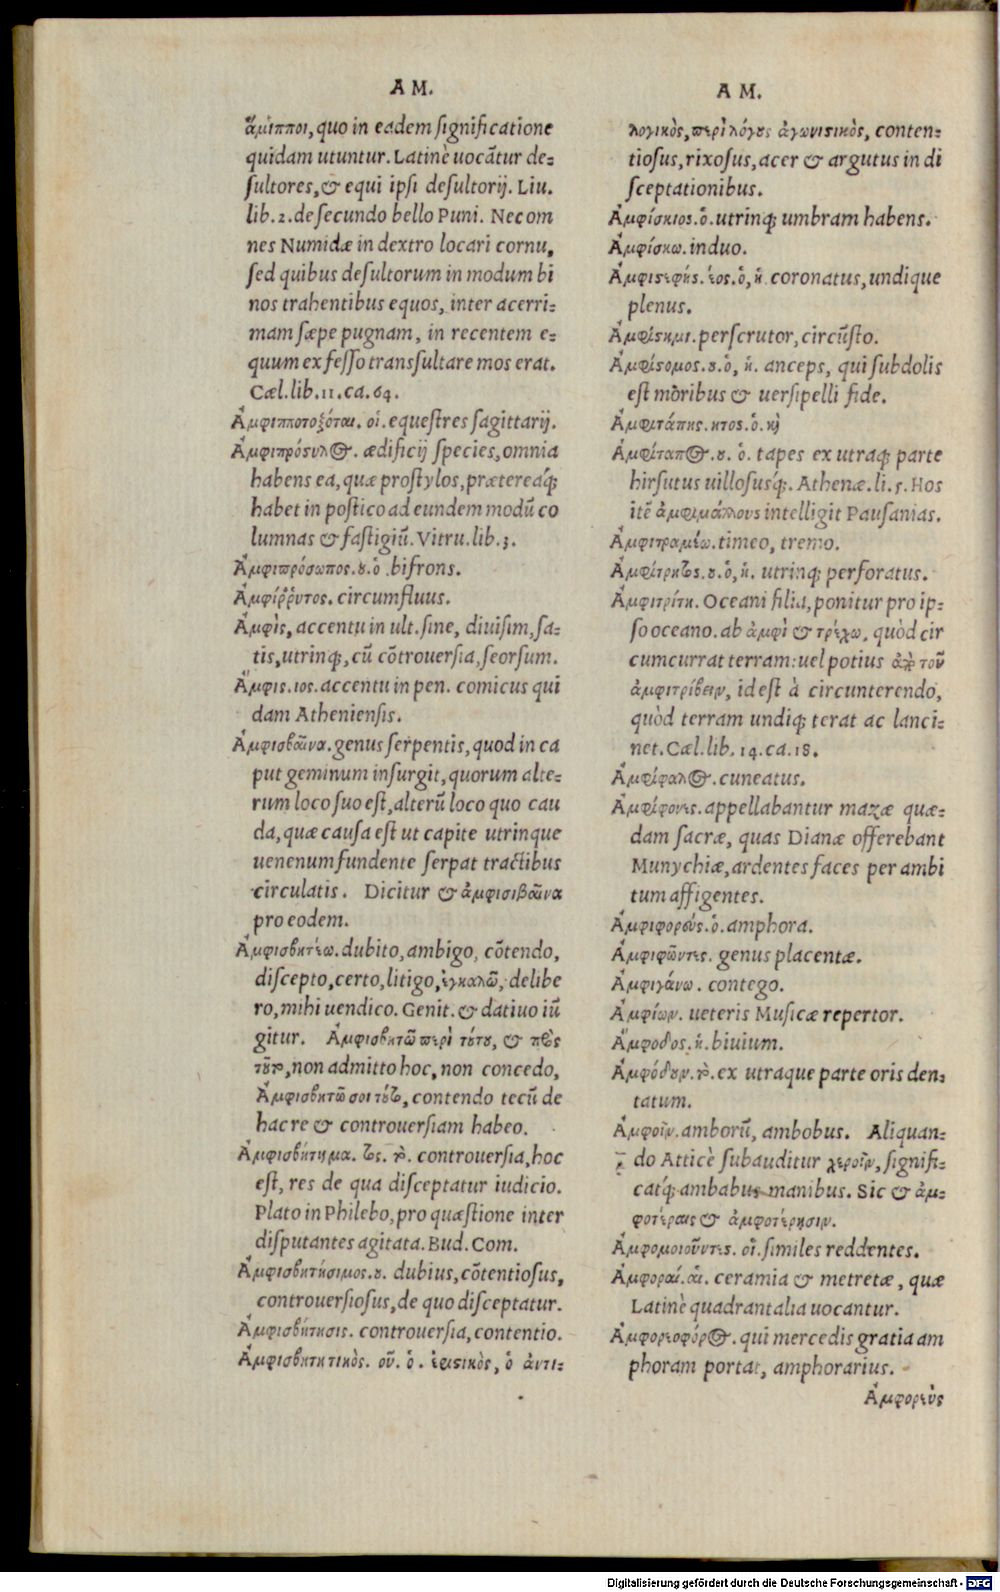 AM.
ἅμιπποι, quo in eadem significatione
quidam utuntur. Latinè uocãtur de=
sultores, & equi ipsi desultorij. Liu.
lib. 2. de secundo bello Puni. Nec om
nes Numidæ in dextro locari cornu,
sed quibus desultorum in modum bi
nos trahentibus equos, inter acerri=
mam sæpe pugnam, in recentem e=
quum ex fesso transultare mos erat.
Cæl. lib. 11. ca. 64.
Ἀμφιπποτοξόται. οἱ. equestres sagittarij.
Ἀμφιπρόσυλος. ædificij species, omnia
habens ea, quæ prostylos, prætereáq;
habet in postico ad eundem modũ co
lumnas & fastigiũ. Vitru. lib. 3.
Ἀμφιπρόσωπος. ου. ὁ. bifrons.
Ἀμφίῤῥυτος. circumfluus.
Ἀμφὶς, accentu in ult. sine, diuisim, sa=
tis, utrinq;, cũ cõtrouersia, seorsum.
Ἄμφις. ιος. accentu in pen. comicus qui
dam Atheniensis.
Ἀμφισβαῖνα. genus serpentis, quod in ca
put geminum insurgit, quorum alte=
rum loco suo est, alterũ loco quo cau
da, quæ causa est ut capite utrinque
uenenum fundente serpat tractibus
circulatis. Dicitur & ἀμφισιβαῖνα
pro eodem.
Ἀμφισβητέω. dubito, ambigo, cõtendo,
discepto, certo, litigo, ἐγκαλῶ, delibe
ro, mihi uendico. Genit. & datiuo iũ
gitur. Ἀμφισβητῶ περὶ τούτου, & πρὸς
τοῦτο, non admitto hoc, non concedo,
Ἀμφισβητῶ σοι τούτο, contendo tecũ de
hac re & controuersiam habeo.
Ἀμφισβήτημα. τος. τὸ. controuersia, hoc
est, res de qua disceptatur iudicio.
Plato in Philebo, pro quæstione inter
disputantes agitata. Bud. Com.
Ἀμφισβητήσιμος. ου. dubius, cõtentiosus,
controuersiosus, de quo disceptatur.
Ἀμφισβήτησις. controuersia, contentio.
Ἀμφισβητητικὸς. οῦ. ὁ. ἐριστικὸς, ὁ ἀντι=
AM.
λογικὸς, περὶ λόγους ἀγωνιστικὸς, conten=
tiosus, rixosus, acer & argutus in di
sceptationibus.
Ἀμφίσκιος. ὁ. utrinq; umbram habens.
Ἀμφίσκω. induo.
Ἀμφιστεφής. έος. ὁ, ἡ. coronatus, undique
plenus.
Ἀμφίστημι. perscrutor, circũsto.
Ἀμφίστομος. ου. ὁ, ἡ. anceps, qui subdolis
est moribus & uersipelli fide.
Ἀμφιτάπης. ητος. ὁ. καὶ
Ἀμφίταπος. ου. ὁ. tapes ex utraq; parte
hirsutus uillosusq́;. Athenæ. li. 5. Hos
itẽ ἀμφιμάλλους intelligit Pausanias.
Ἀμφιτραμέω. timeo, tremo.
Ἀμφίτρητος. ου. ὁ, ἡ. utrinq; perforatus.
Ἀμφιτρίτη. Oceani filia, ponitur pro ip=
so oceano. ab ἀμφὶ & τρέχω, quòd cir
cumcurrat terram: uel potius ἀπὸ τοῦ
ἀμφιτρίβειν, id est à circunterendo,
quòd terram undiq; terat ac lanci=
net. Cæl. lib. 14. ca. 18.
Ἀμφίφαλος. cuneatus.
Ἀμφίφονες. appellabantur mazæ quæ=
dam sacræ, quas Dianæ offerebant
Munychiæ, ardentes faces per ambi
tum affigentes.
Ἀμφιφορεύς. ὁ. amphora.
Ἀμφιφῶντες. genus placentæ.
Ἀμφιχάνω. contego.
Ἀμφίων. ueteris Musicæ repertor.
Ἄμφοδος. ἡ. biuium.
Ἀμφόδουν. τὸ. ex utraque parte oris den=
tatum.
Ἀμφοῖν. amborũ, ambobus. Aliquan=
do Atticè subauditur χεροῖν, signifi=
catq́; ambabus manibus. Sic & ἀμ=
φοτέραις & ἀμφοτέρησιν.
Ἀμφομοιοῦντες. οἱ. similes reddentes.
Ἀμφοραί. αἱ. ceramia & metretæ, quæ
Latinè quadrantalia uocantur.
Ἀμφορεοφόρος. qui mercedis gratia am
phoram portat, amphorarius.
Ἀμφορεὺς
Digitalisierung gefördert durch die Deutsche Forschungsgemeinschaft - DFG